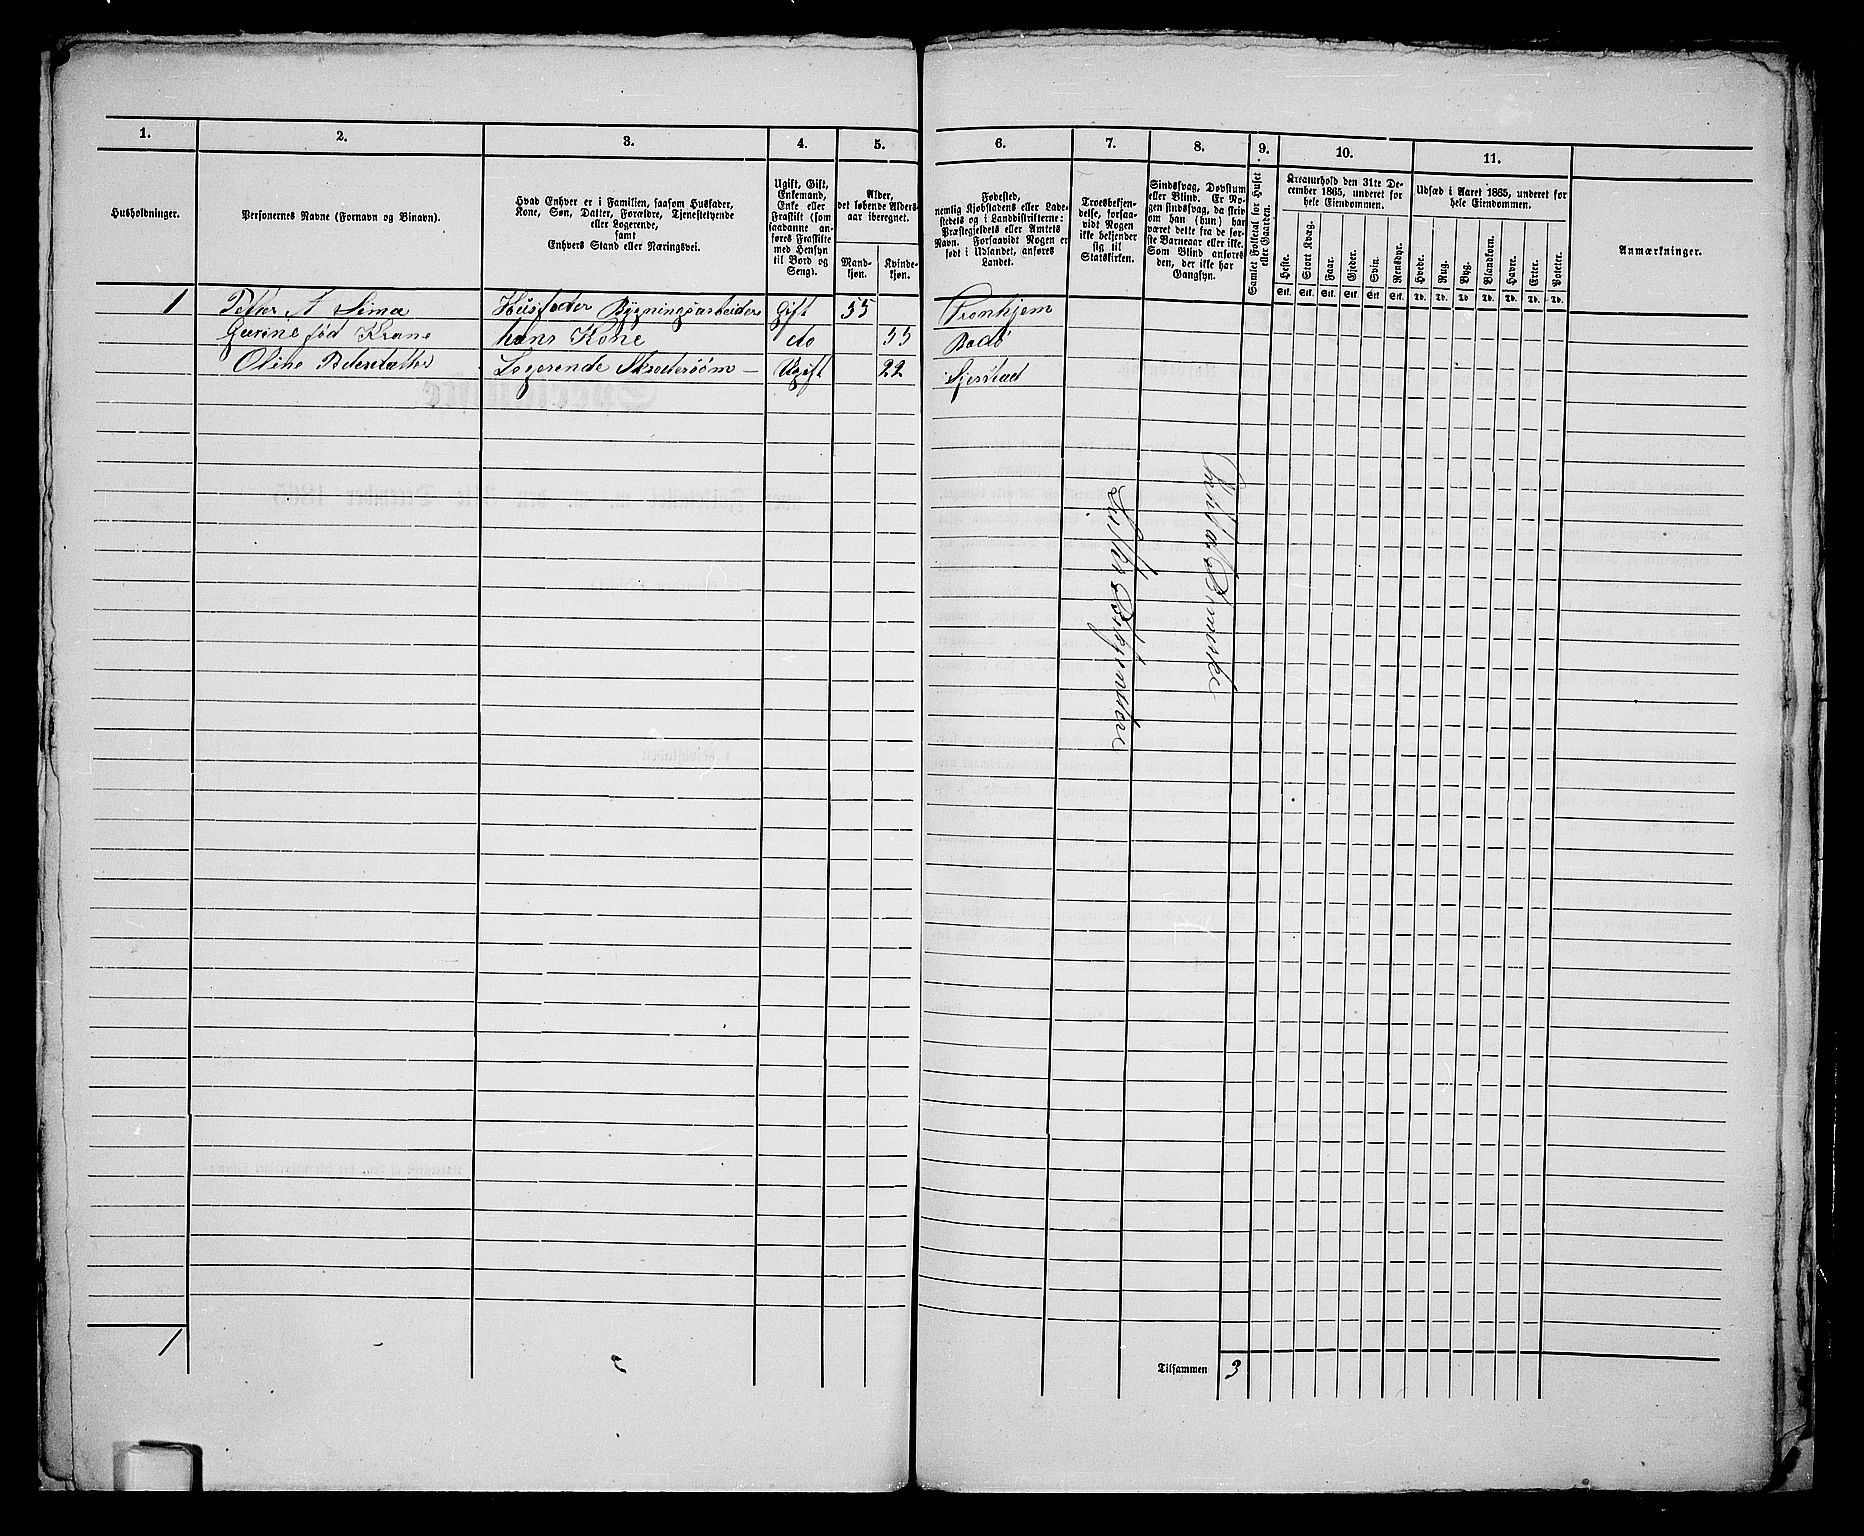 1. 2. 3. 4. 5. 6. 7. 8. 9. 10. 11.
Husholdninger.
Personernes Navne (Fornavn og Binavn).
Hvad Enhver er i Familien, saasom Husfader,
Kone, Søn, Datter, Forældre, Tjenestetyende
eller Logerende,
samt
Enhvers Stand eller Næringsvei.
Ugift, Gift,
Enkemand,
Enke eller
Fraskilt (som
saadanne an-
føres Fraskilte
med Hensyn
til Bord og
Seng).
Alder,
det løbende Alders-
aar iberegnet.
Mand-
kjøn.
Kvinde-
kjøn.
Fødested,
nemlig Kjøbstadens eller Lade-
stedets og i Landdistrikterne:
Præstegjeldets eller Amtets
Navn. Forsaavidt Nogen er
født i Udlandet, anføres
Landet.
Troesbekjen-
delse, forsaa-
vidt Nogen
ikke bekjender
sig til
Statskirken.
Sindssvag, Døvstum
eller Blind. Er No-
gen sindssvag, da skriv
om han (hun) har
været dette fra de før-
ste Barneaar eller ikke.
Som Blind anføres
den, der ikke har
Gangsyn.
Samlet Folketal for Huset
eller Gaarden.
Kreaturhold den 31te De-
cember 1865, underet for
hele Eiendommen.
Heste. Stort Kvæg. Faar. Gjeder. Svin. Rensdyr.
Stk. Stk. Stk. Stk. Stk. Stk.
Udsæd i Aaret 1865, underet for
hele Eiendommen.
Hvede. Rug. Byg. Blandkorn. Havre. Erter. Poteter.
Td. Td. Td. Td. Td. Td. Td.
Anmærkninger.
1 Petter A Sima Husfader Bygningsarbeider Gift 55 Tronhjem
Gurine fød Krane hans Kone do 55 Bodø
Oline Petersdatter Logerende Ugift 22
1
Tilsammen 3